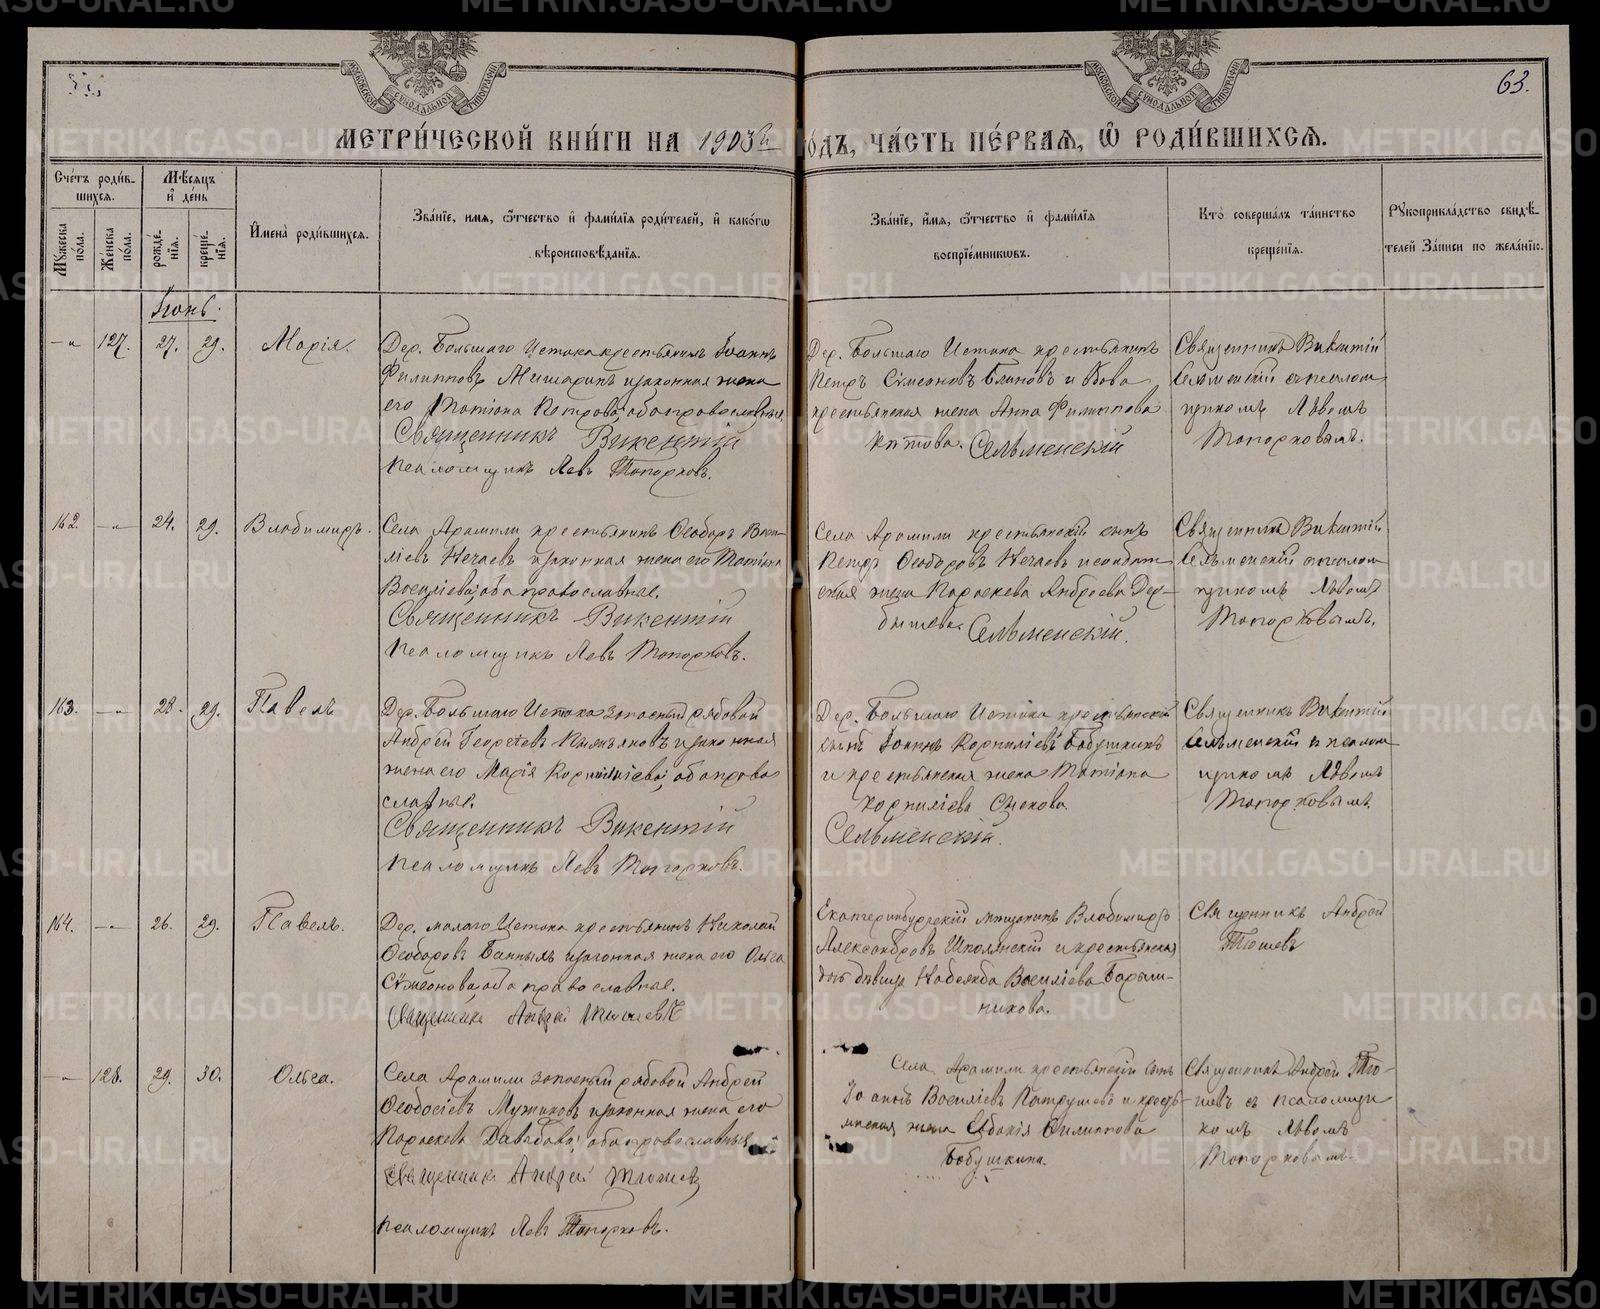 63.
МОСКОВСКОЙ СѴНОДАЛЬНОЙ ТИПОГРАФІИ
МОСКОВСКОЙ СѴНОДАЛЬНОЙ ТИПОГРАФІИ
МЕТРИ́ЧЕСКОЙ КНИ́ГИ НА 1903й
О́ДЪ, ЧА́СТЬ ПЕ́РВАѦ, Ѡ҆ РОДИ́ВШИХСѦ.
Счётъ роди́в-
шихсѧ.
Мѣ́сѧцъ
и҆ де́нь
Мꙋ́жеска по́ла.
Же́нска по́ла.
рожде́нїѧ.
креще́нїѧ.
И҆мена̀ роди́вшихсѧ.
Зва́нїе, имѧ, ѻ҆́тчество и҆ фами́лїѧ роди́телей, и҆ како́гѡ
вѣроисповѣ́данїѧ.
Зва́нїе, и҆́мѧ, ѻ҆́тчество и҆ фами́лїѧ
воспрїе́мникѡвъ.
Кто̀ соверша́лъ та́инство
креще́нїѧ.
Рꙋкоприкла́дство свидѣ́-
телей За́писи по жела́нїю.
Іюнь.
127. 27. 29. Марія.
Дер. Большаго Истока крестьянинъ Іоаннъ
Филипповъ Мишаринъ и законная жена
его Татіана Петрова, оба православные.
Священникъ Викентій
Псаломщикъ Левъ Топорковъ.
Дер. Большаго Истока крестьянинъ
Петръ Сѵмеоновъ Блиновъ и
крестьянская жена Анна Филиппова
Сельменскій
Священникъ Викентій
Сельменскій съ псалом
щикомъ Львомъ
Топорковымъ.
162. 24. 29. Владимиръ.
Села Арамили крестьянинъ Ѳеодоръ Васи-
ліевъ Нечаевъ и законная жена его Татіана
Василіева, оба православные.
Священникъ Викентій
Псаломщикъ Левъ Топорковъ.
Села Арамили крестьянскій сынъ
Петръ Ѳеодоровъ Нечаевъ и солдат
ская жена Параскева Андреева Дер-
бышева. Сельменскій.
Священникъ Викентій
Сельменскій съ псалом
щикомъ Львомъ
Топорковымъ.
163. 28. 29. Павелъ
Дер. Большаго Истока запасный рядовой
Андрей Георгіевъ и законная
жена его Марія Корниліева, оба право
славные.
Священникъ Викентій
Псаломщикъ Левъ Топорковъ.
Дер. Большаго Истока крестьянскій
сынъ Іоаннъ Корниліевъ Бабушкинъ
и крестьянская жена Татіана
Корниліева
Сельменскій.
Священникъ Викентій
Сельменскій съ псалом
щикомъ Львомъ
Топорковымъ.
164. 26. 29. Павелъ.
Дер. малаго Истока крестьянинъ Николай
Ѳеодоровъ Банныхъ и законная жена его Ольга
Сѵмеонова, оба православные.
Священникъ Андрей Тюшевъ
Екатеринбургскій мѣщанинъ Владимиръ
Александровъ Школянскій и крестьянская
дѣвица Надежда Василіева Барыш-
никова.
Священникъ Андрей
Тюшевъ
128. 29. 30. Ольга.
Села Арамили запасный рядовой Андрей
Ѳеодосіевъ Мужиковъ и законная жена его
Параскева Давидова, оба православные
Священникъ Андрей Тюшевъ
Псаломщикъ Левъ Топорковъ.
Села Арамили крестьянскій сынъ
Іоаннъ Василіевъ Патрушевъ и кресть-
янская жена Евдокія Филиппова
Бабушкина.
Священникъ Андрей Тю-
шевъ съ псаломщи
комъ Львомъ
Топорковымъ.
METRIKI.GASO-URAL.RU